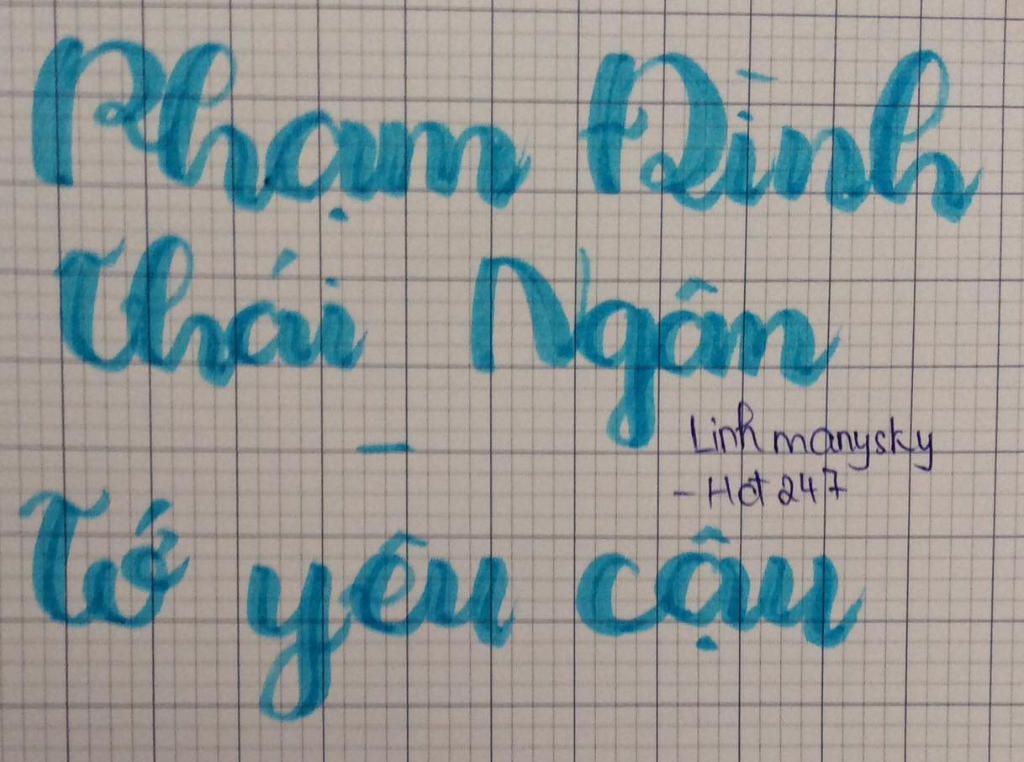 Phạm Đình
Thái Ngân
–
Tớ yêu cậu
Linh manysky
- Hot 247